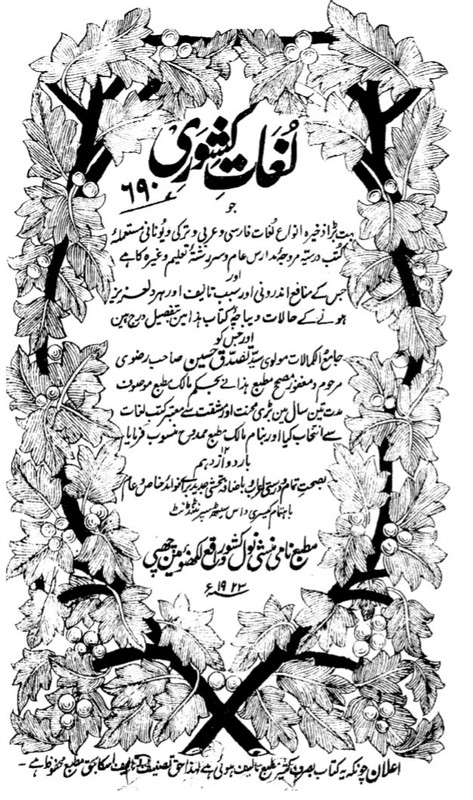 لغات کشوری
۶۹۰
جو
بہت بڑا ذخیرہ انواع لغات فارسی و عربی و ترکی و یونانی مستعملۂ
کتب درسیہ مروجۂ مدارس عام و سررشتۂ تعلیم وغیرہ کا ہے
اور
جس کے منافع اندرونی اور سبب تالیف اور ہر دلعزیز
ہونے کے حالات دیباچۂ کتاب ہذا مین بتفصیل درج ہین
اور جس کو
جامع الکمالات مولوی سید تصدق حسین صاحب رضوی
مرحوم و مغفور مصحح مطبع ہذا نے بحکم مالک مطبع موصوف
مدت تین سال مین بڑی محنت اور مشقت سے معتبر کتب لغات
سے انتخاب کیا اور بنام مالک مطبع ممدوح منسوب فرمایا
بار دوازدہم
بصحت تمام و درستی باضافۂ تحشی جدید برائے فوائد خاص و عام
باہتمام کیسری داس سیٹھ سپرنٹنڈنٹ
مطبع نامی منشی نول کشور واقع لکھنؤ مین چھپی
۱۹۲۳ء
اعلان چونکہ یہ کتاب بصرف کثیر مطبع تالیف ہوئی ہے لہذا حق تصنیف و تالیف اسکا بحق مطبع محفوظ ہے -